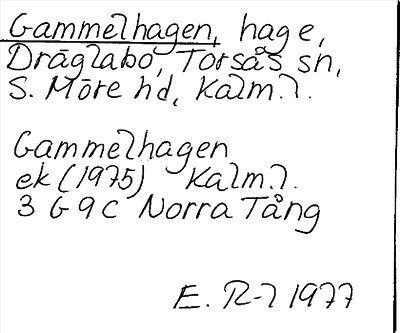 Gammelhagen, hage,
Dräglabo, Torsås sn,
S. Möre hd, Kalm.l.
Gammelhagen
ek (1975) Kalm.l.
3 G 9 c Norra Tång
E. R-l 1977